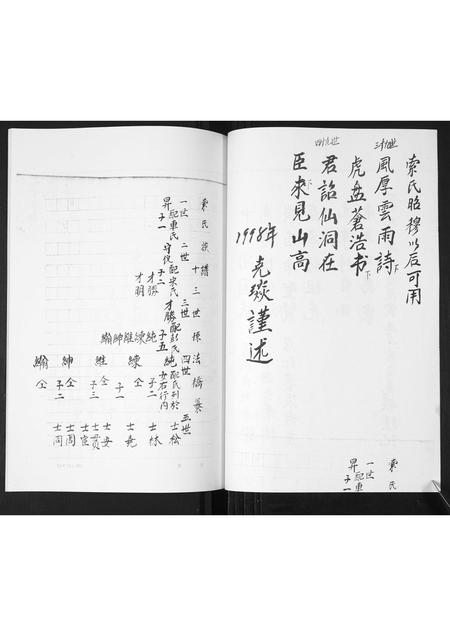 索氏昭穆以后可用
三十世
風厚雲雨詩
下
虎盘蒼浩书
下
君詔仙洞在
臣来見山高
1998年 克燚謹述
索氏族譜 十三世孫 法橋录
一世 二世 三世 四世 五世
昇 配車氏 子一
守俊 配宋氏 子二
才勝
才明
才勝 配彭氏 子五
純 練 維 紳 綸
純 配氏列於女右行内 子二
士松
士林
練 子一
士尭
維 仝 子三
士安
士贾
士宦
紳 仝 子二
士周
士同
綸 仝
索氏
一世
昇 配車
子一